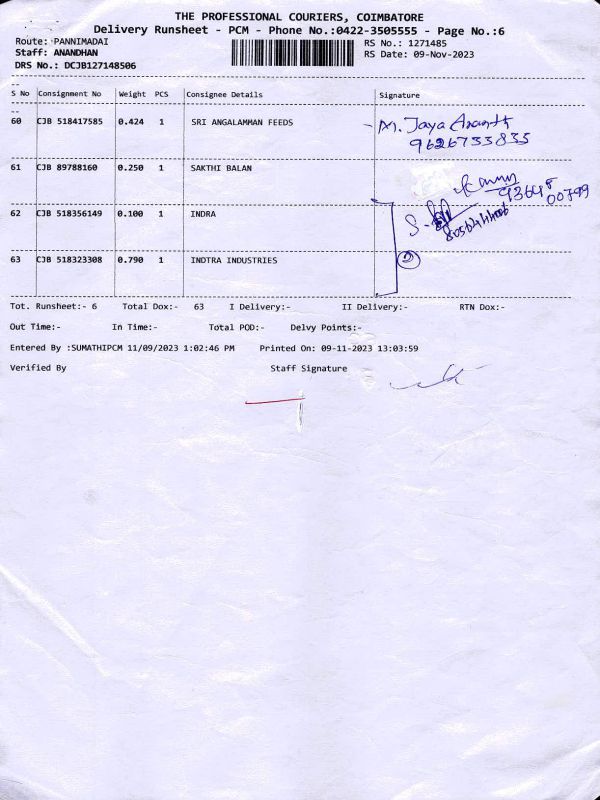 THE PROFESSIONAL COURIERS, COIMBATORE
Delivery Runsheet - PCM - Phone No.:0422-3505555 - Page No.:6
Route: PANNIMADAI RS No.: 1271485
Staff: ANANDHAN RS Date: 09-Nov-2023
DRS No.: DCJB127148506
S No Consignment No Weight PCS Consignee Details Signature
60 CJB 518417585 0.424 1 SRI ANGALAMMAN FEEDS M. Jaya Ananth
9626733835
61 CJB 89788160 0.250 1 SAKTHI BALAN
93648
00799
62 CJB 518356149 0.100 1 INDRA
63 CJB 518323308 0.790 1 INDTRA INDUSTRIES 2
Tot. Runsheet:- 6 Total Dox:- 63 I Delivery:- II Delivery:- RTN Dox:-
Out Time:- In Time:- Total POD:- Delvy Points:-
Entered By :SUMATHIPCM 11/09/2023 1:02:46 PM Printed On: 09-11-2023 13:03:59
Verified By Staff Signature